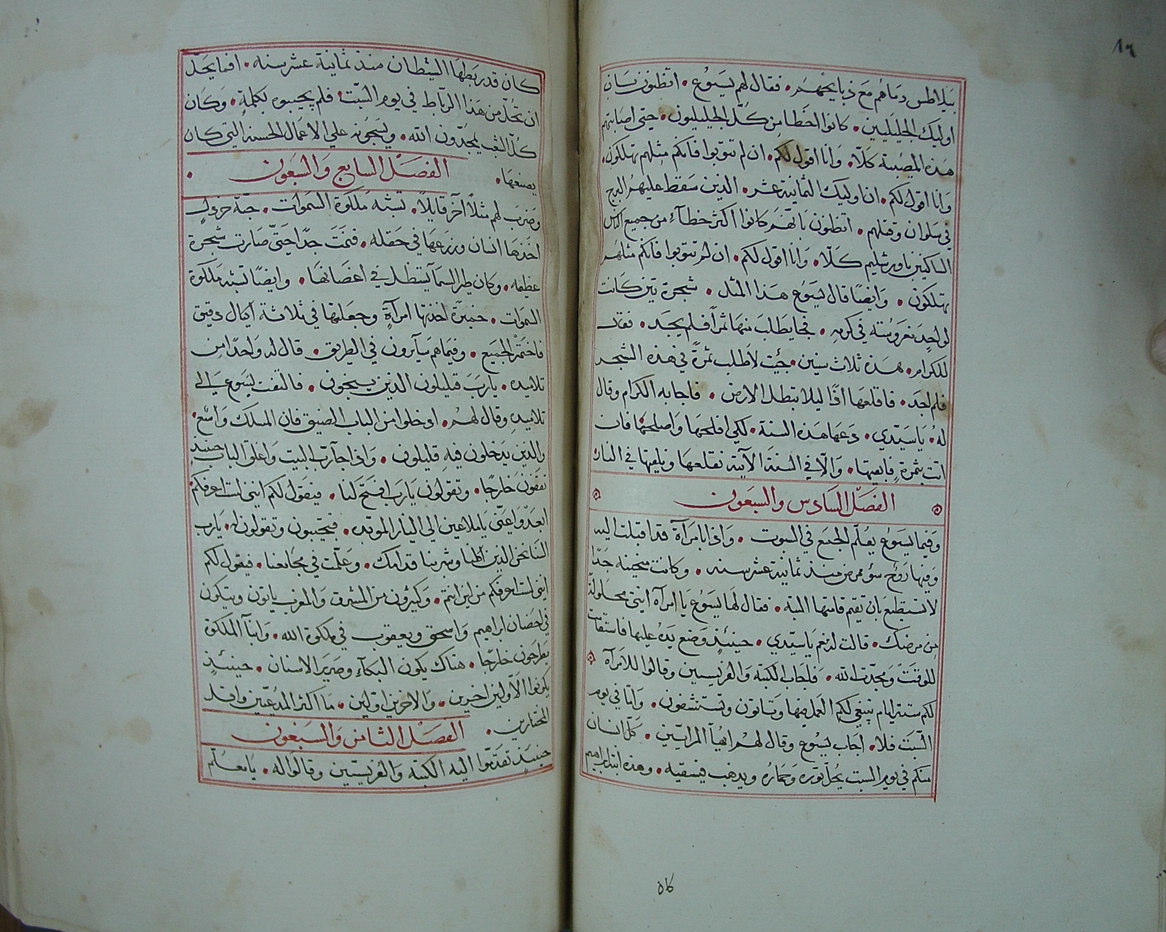 بيلاطس دماهم مع ذبايحهم • فقال لهم يسوع • اتظنون بان
اوليك الجليليين • كانوا الخطا من كل الجليليون • حتى اصابتهم
هذه المصيبة كلا • وانا اقول لكم • ان لم تتوبوا فانكم مثلهم تهلكون •
وانا اقول لكم • ان اوليك الثمانية عشر • الذين سقط عليهم البرج
في سلوان وقتلهم • اتظنون بانهم كانوا اكثر خطآء من جميع الناس
الساكنين باورشليم كلا • وانا اقول لكم • ان لم تتوبوا فانكم مثلهم
تهلكون • وايضا قال يسوع هذا المثل • شجرة تين كانت
لواحد مغروسة في كرمه • فجا يطلب منها ثمرا فلم يجد • فقال
للكرام • هذه ثلاث سنين • جيت لاطلب ثمرة في هذه الشجرة
فلم اجد • فاقلعها اذا ليلا تبطل الارض • فاجابه الكرام وقال
له • ياسيدي • دعها هذه السنة • لكي افلحها واصلحها فان
اتت بثمرة فابقيها • والا في السنة الآتية نقلعها ونلقيها في النار
الفصل السادس والسبعون
وفيما يسوع يعلم الجمع في السبوت • واذا امرآة قد اقبلت اليه
وفيها روح سوء ممرض منذ ثمانية عشر سنه • وكانت منحنية جدا
لا تستطيع بان تقيم قامتها البتة • فقال لها يسوع يا امرآة انتي محلولة
من مرضك • قالت له نعم ياسيدي • حينيذ وضع يده عليها فاستقامت
للوقت ومجدت الله • فاجاب الكتبة والفريسيين وقالوا للامرآة
لكم ستة ايام ينبغي لكم العمل فيها وتاتون وتستشفون • واما في يوم
السبت فلا • اجاب يسوع وقال لهم ايها المرايين • كل انسان
منكم في يوم السبت يحل ثوره وحماره ويذهب فيسقيه • وهذه ابنة ابراهيم
٥٨
كان قد ربطها الشيطان منذ ثمانية عشر سنه • افما يحل
ان تحل من هذا الرباط في يوم السبت • فلم يجيبوه بكلمة • وكان
كل الشعب يمجدون الله • ويتعجبون علي الاعمال الحسنة التي كان
يصنعها •
الفصل السابع والسبعون
وضرب لهم مثلا آخر قايلا • تشبه ملكوة السموات • حبة خردل
اخذها انسان وزرعها في حقله • فنمت جدا حتى صارت شجرة
عظيمه • وكان طير السما يستظل في اغصانها • وايضا تشبه ملكوة
السموات • خميرة اخذتها امرآة وجعلتها في ثلاثة اكيال دقيق
فاختمر الجميع • وفيما هم سآيرون في الطريق • قال له واحد من
تلاميذه • يارب قليلون الذين ينجون • فالتفت يسوع الي
تلاميذه وقال لهم • ادخلوا من الباب الضيق فان المسلك واسع •
والذين يدخلون فيه قليلون • واذا جا رب البيت واغلق الباب حينيذ
تقفون خارجا • وتقولون يارب افتح لنا • فيقول لكم انني لست اعرفكم
ابعدوا عني ياملاعين الى النار الموقده • فتجيبون وتقولون له • يارب
السنا نحن الذين اكلنا وشربنا قدامك • وعلمت في مجامعنا • فيقول لكم
انني لست اعرفكم من اين انتم • وكثيرون من المشرق والمغرب ياتون ويتكون
في احضان ابراهيم واسحق ويعقوب في ملكوة الله • وابنآ الملكوة
يطرحون خارجا • هناك يكون البكآء وصرير الاسنان • حينيذ
يكونوا الاولين اخرين • والاخرين اولين • ما اكثر المدعيين واقل
المختارين •
الفصل الثامن والسبعون
حينيذ تقدموا اليه الكتبة والفريسيين وقالوا له • يامعلم